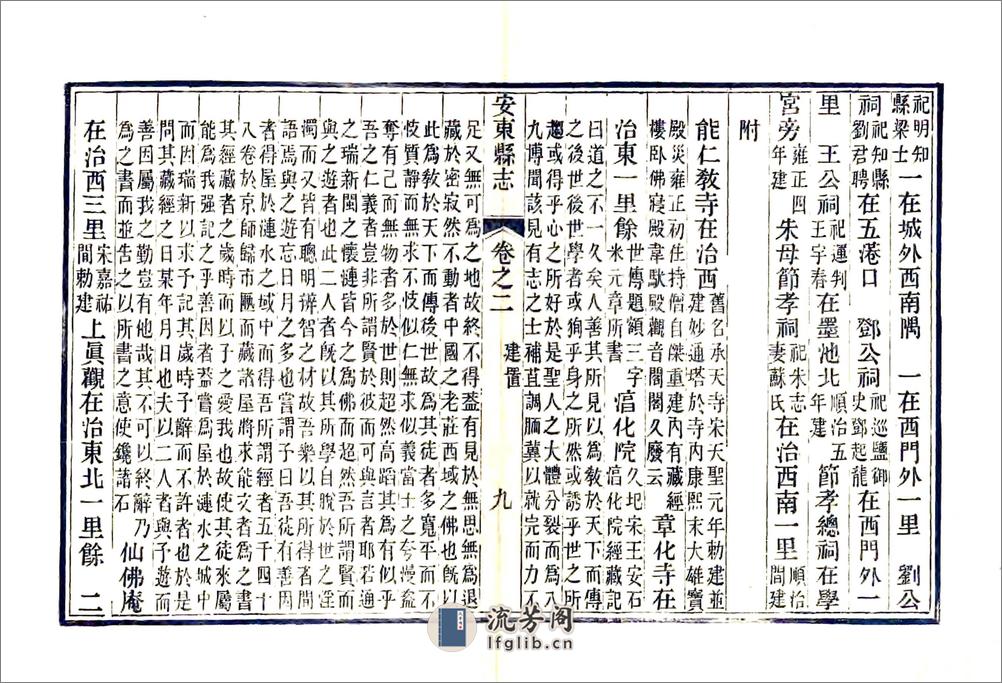 祀明知
縣梁士
一在城外西南隅　一在西門外一里　劉公
祠
祀知縣
劉君聘
在五港口　鄧公祠
祀巡鹽御
史鄧起龍
在西門外一
里　王公祠
祀運判
王宇春
在墨池北
順治五
年建
節孝總祠在學
宮旁
雍正四
年建
朱母節孝祠
祀朱志
妻蘇氏
在治西南一里
順治
間建
附
能仁教寺在治西
舊名承天寺宋天聖元年勅建並
建妙通塔於寺內康熙末大雄寶
殿災雍正初住持僧自傑重建內有藏經
樓臥佛寢殿韋馱殿觀音閣閣久廢云
章化寺在
治東一里餘
米元章所書
世傳題額三字
㾿化院
久圮宋王安石
㾿化院經藏記
曰道之不一久矣人善其所見以為教於天下而傳
之後世後世學者或狥乎身之所然或誘乎世之所
趨或得乎心之所好於是聖人之大體分裂而為八
九博聞該見有志之士補苴調胹冀以就完而力不
安東縣志
卷之二
建置
九
足又無可為之地故終不得葢有見於無思無為退
藏於密寂然不動者中國之老莊西域之佛也旣以
此為教於天下而傳後世故為其徒者多寬平而不
忮質靜而無求不忮似仁無求似義當士之夸漫盜
奪有己而無物者多於世則超然高蹈其為有似乎
吾之仁義者豈非所謂賢於彼而可與言者耶若通
之瑞新閩之懷璉皆今之為佛而超然吾所謂賢而
與之遊者也此二人者旣以其所學自脫於世之淫
濁而又皆有聰明辨智之材故吾樂以其所得者間
語焉與之遊忘日月之多也嘗謂予曰吾徒有善因
者得屋於漣水之城中而得吾所謂經者五千四十
八卷於京師歸市匭而藏諸屋將求能文者為之書
其經藏者之歲時而以子之愛我也故使其徒來屬
能為我强記之乎善因者葢嘗為屋於漣水之城中
而因瑞新以求予記其歲時予辭而不許者也於是
問其藏經之日某年月日也夫以二人者與予遊而
善因屬我之勤豈有他哉其不可以終辭乃
為之書而並告之以所書之意使鑱諸石
仙佛庵
在治西三里
宋嘉祐
間勅建
上眞觀在治東北一里餘　二
流芳阁
lfglib.cn